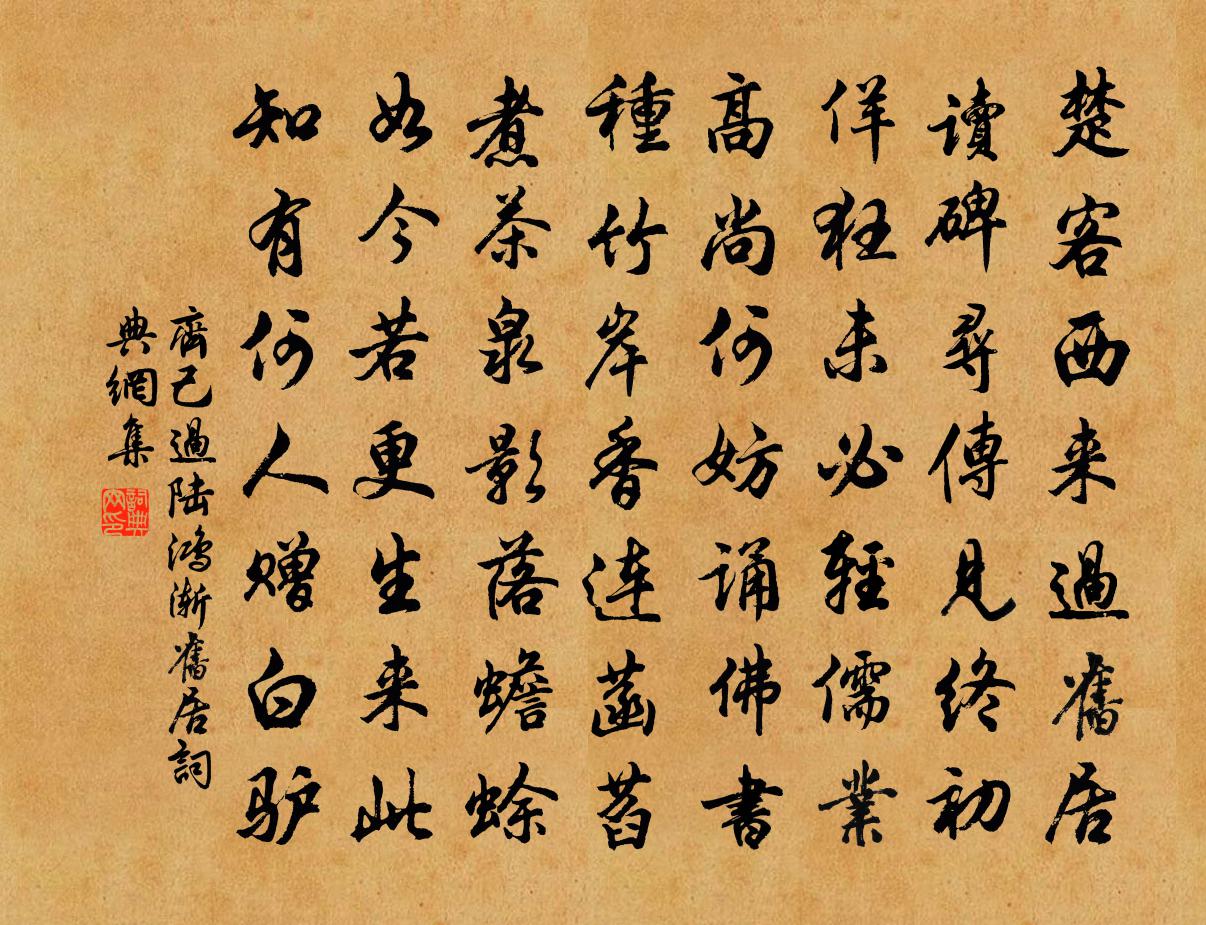 楚客西来過舊居
讀碑尋傳見终初
佯狂未必輕儒業
高尚何妨誦佛書
種竹岸香連菡萏
煮茶泉影落蟾蜍
如今若更生来此
知有何人赠白驴
齊己過陆鴻漸舊居詞
典網集
詞典网印